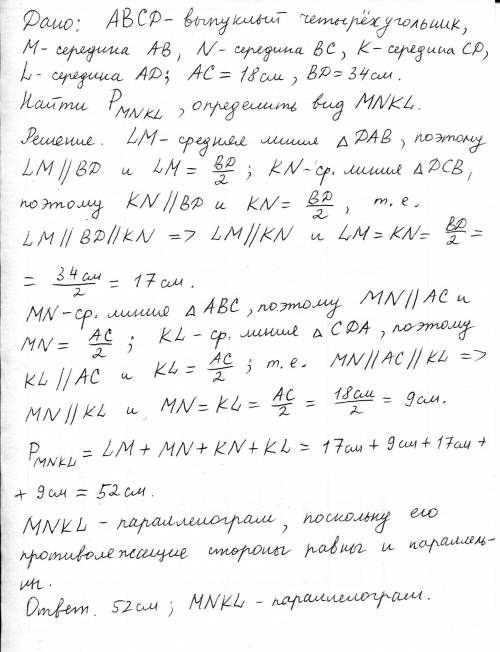 Дано: ABCD - выпуклый четырёхугольник,
M - середина AB, N - середина BC, K - середина CD,
L - середина AD; AC = 18 см, BD = 34 см.
Найти P_MNKL, определить вид MNKL.
Решение. LM - средняя линия △ DAB, поэтому
LM // BD и LM = BD/2; KN - ср. линия △ DCB,
поэтому KN // BD и KN = BD/2, т.е.
LM // BD // KN => LM // KN и LM = KN = BD/2 =
= 34 см/2 = 17 см.
MN - ср. линия △ ABC, поэтому MN // AC и
MN = AC/2; KL - ср. линия △ CDA, поэтому
KL // AC и KL = AC/2; т.е. MN // AC // KL =>
MN // KL и MN = KL = AC/2 = 18 см/2 = 9 см.
P_MNKL = LM + MN + KN + KL = 17 см + 9 см + 17 см +
+ 9 см = 52 см.
MNKL - параллелограм, поскольку его
противолежащие стороны равны и параллель-
ны.
Ответ. 52 см; MNKL - параллелограм.